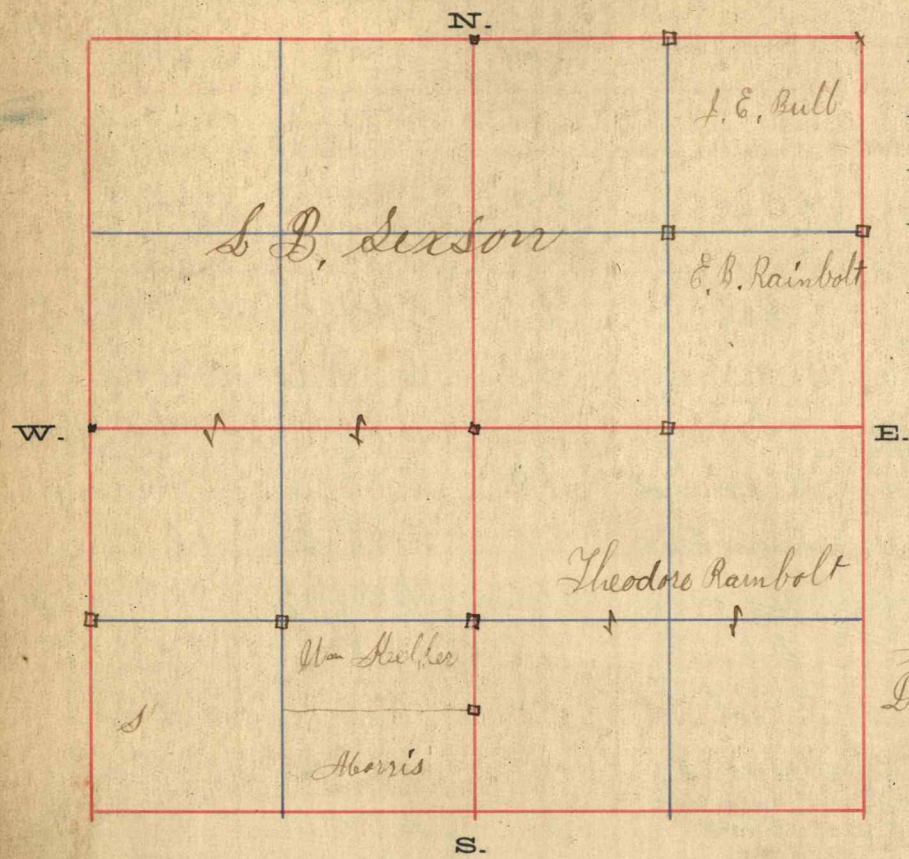 N.
J. E. Bull
L B, Sexson
E. B. Rainbolt
W.
E.
Theodore Rainbolt
Wm
S
Morris
S.